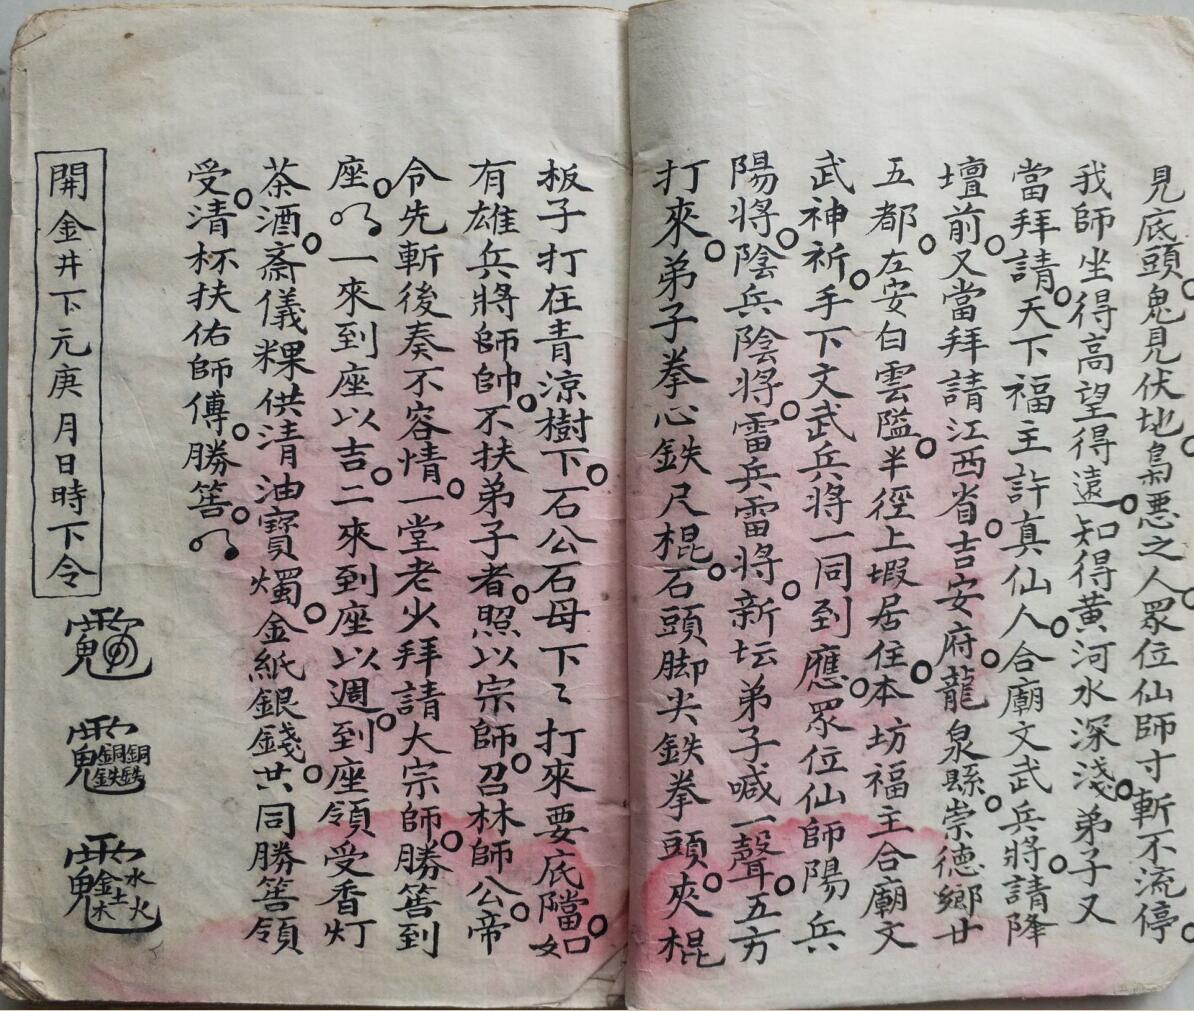 見底頭。鬼見伏地。梟惡之人。眾位仙師寸斬不流停。
我師坐得高望得遠。知得黃河水深淺。弟子又
當拜請。天下福主許真仙人。合廟文武兵將。請降
壇前。又當拜請江西省。吉安府。龍泉縣。崇德鄉廿
五都。左安白雲隘。半徑上垇居住。本坊福主合廟文
武神祈。手下文武兵將一同到應。眾位仙師陽兵
陽將。陰兵陰將。雷兵雷將。新坛弟子喊一聲。五方
打來。弟子拳心鉄尺棍。石頭脚尖鉄拳頭。夾棍
板子打在青涼樹下。石公石母下〻打來要底擋。如
有雄兵將師帥。不扶弟子者。照以宗師。召林師公。帝
令先斬後奏不容情。一堂老少拜請大宗師。勝筶到
座。一來到座以吉。二來到座以週。到座領受香灯
茶酒。斎儀粿供清油寶燭。金紙銀錢。共同勝筶領
受。清杯扶佑師傅。勝筶。
開金井下元庚月日時下令
銅銅鉄鉄
金木水火土